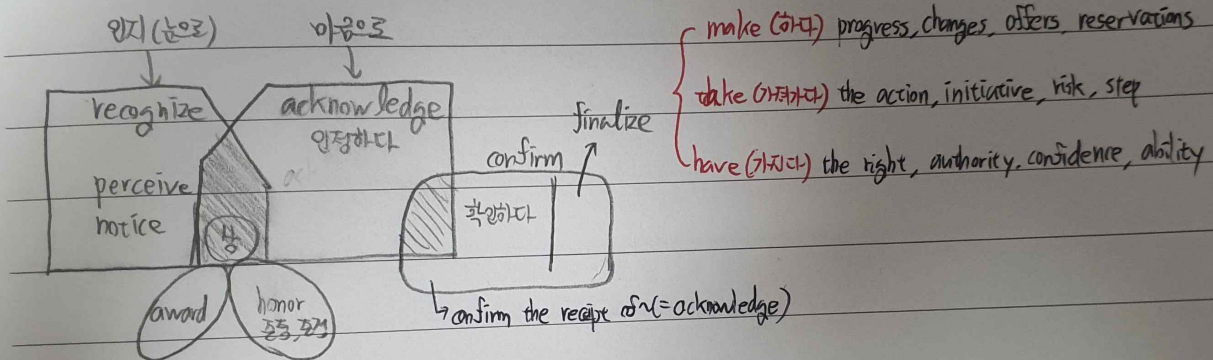 인지(눈으로)
마음으로
recognize
acknowledge
인정하다
perceive
notice
상
award
honor
존중, 존경
finalize
confirm
확인하다
confirm the receipt of~(=acknowledge)
make (하다) progress, changes, offers, reservations
take (가져가다) the action, initiative, risk, step
have (가지다) the right, authority. confidence, ability